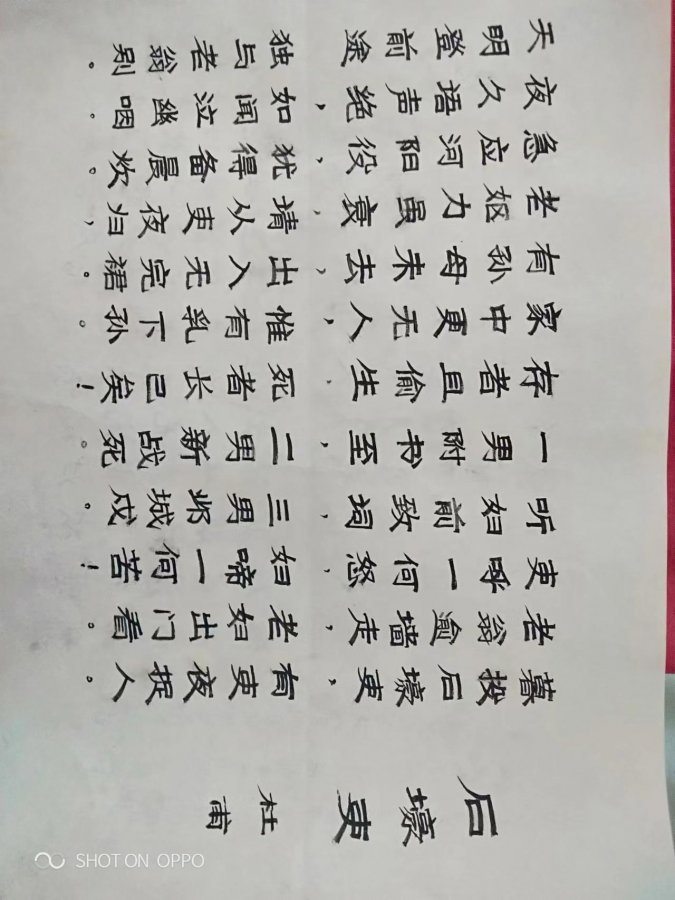 石壕吏
杜甫
暮投石壕吏，有吏夜捉人。
老翁逾墙走，老妇出门看。
吏呼一何怒，妇啼一何苦！
听妇前致词，三男邺城戍。
一男附书至，二男新战死。
存者且偷生，死者长已矣！
家中更无人，惟有乳下孙。
有孙母未去，出入无完裙。
老妪力虽衰，请从吏夜归，
急应河阳役，犹得备晨炊。
夜久语声绝，如闻泣幽咽。
天明登前途 独与老翁别。
SHOT ON OPPO